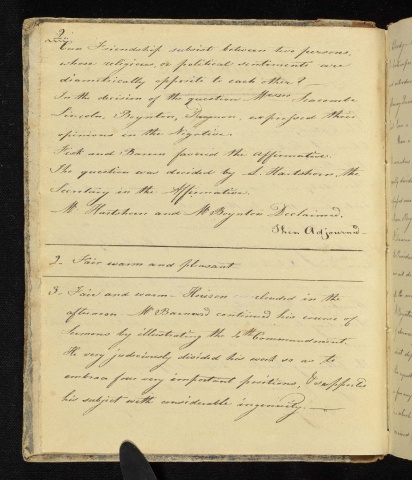 Can Friendship subsist between two persons,
whose religious, or political sentiments are
diametrically opposite to each other?
In the decision of the question Messrs
Lincoln, Boynton, expressed their
opinions in the Negative.
Peck and favored the affirmative.
The question was decided by S. Hartshorn, the
Secretary in the Affirmative.
Mr Hartshorn and Mr Boynton Declaimed.
Then Adjournd.
2. Fair warm and pleasant
3. Fair and warm - Horizon clouded in the
afternoon. Mr Barnard continued his course of
Sermons by illustrating the 4th Commandment.
He very judiciously divided his work so as to
embrace four very important positions, & supported
his subject with considerable ingenuity.